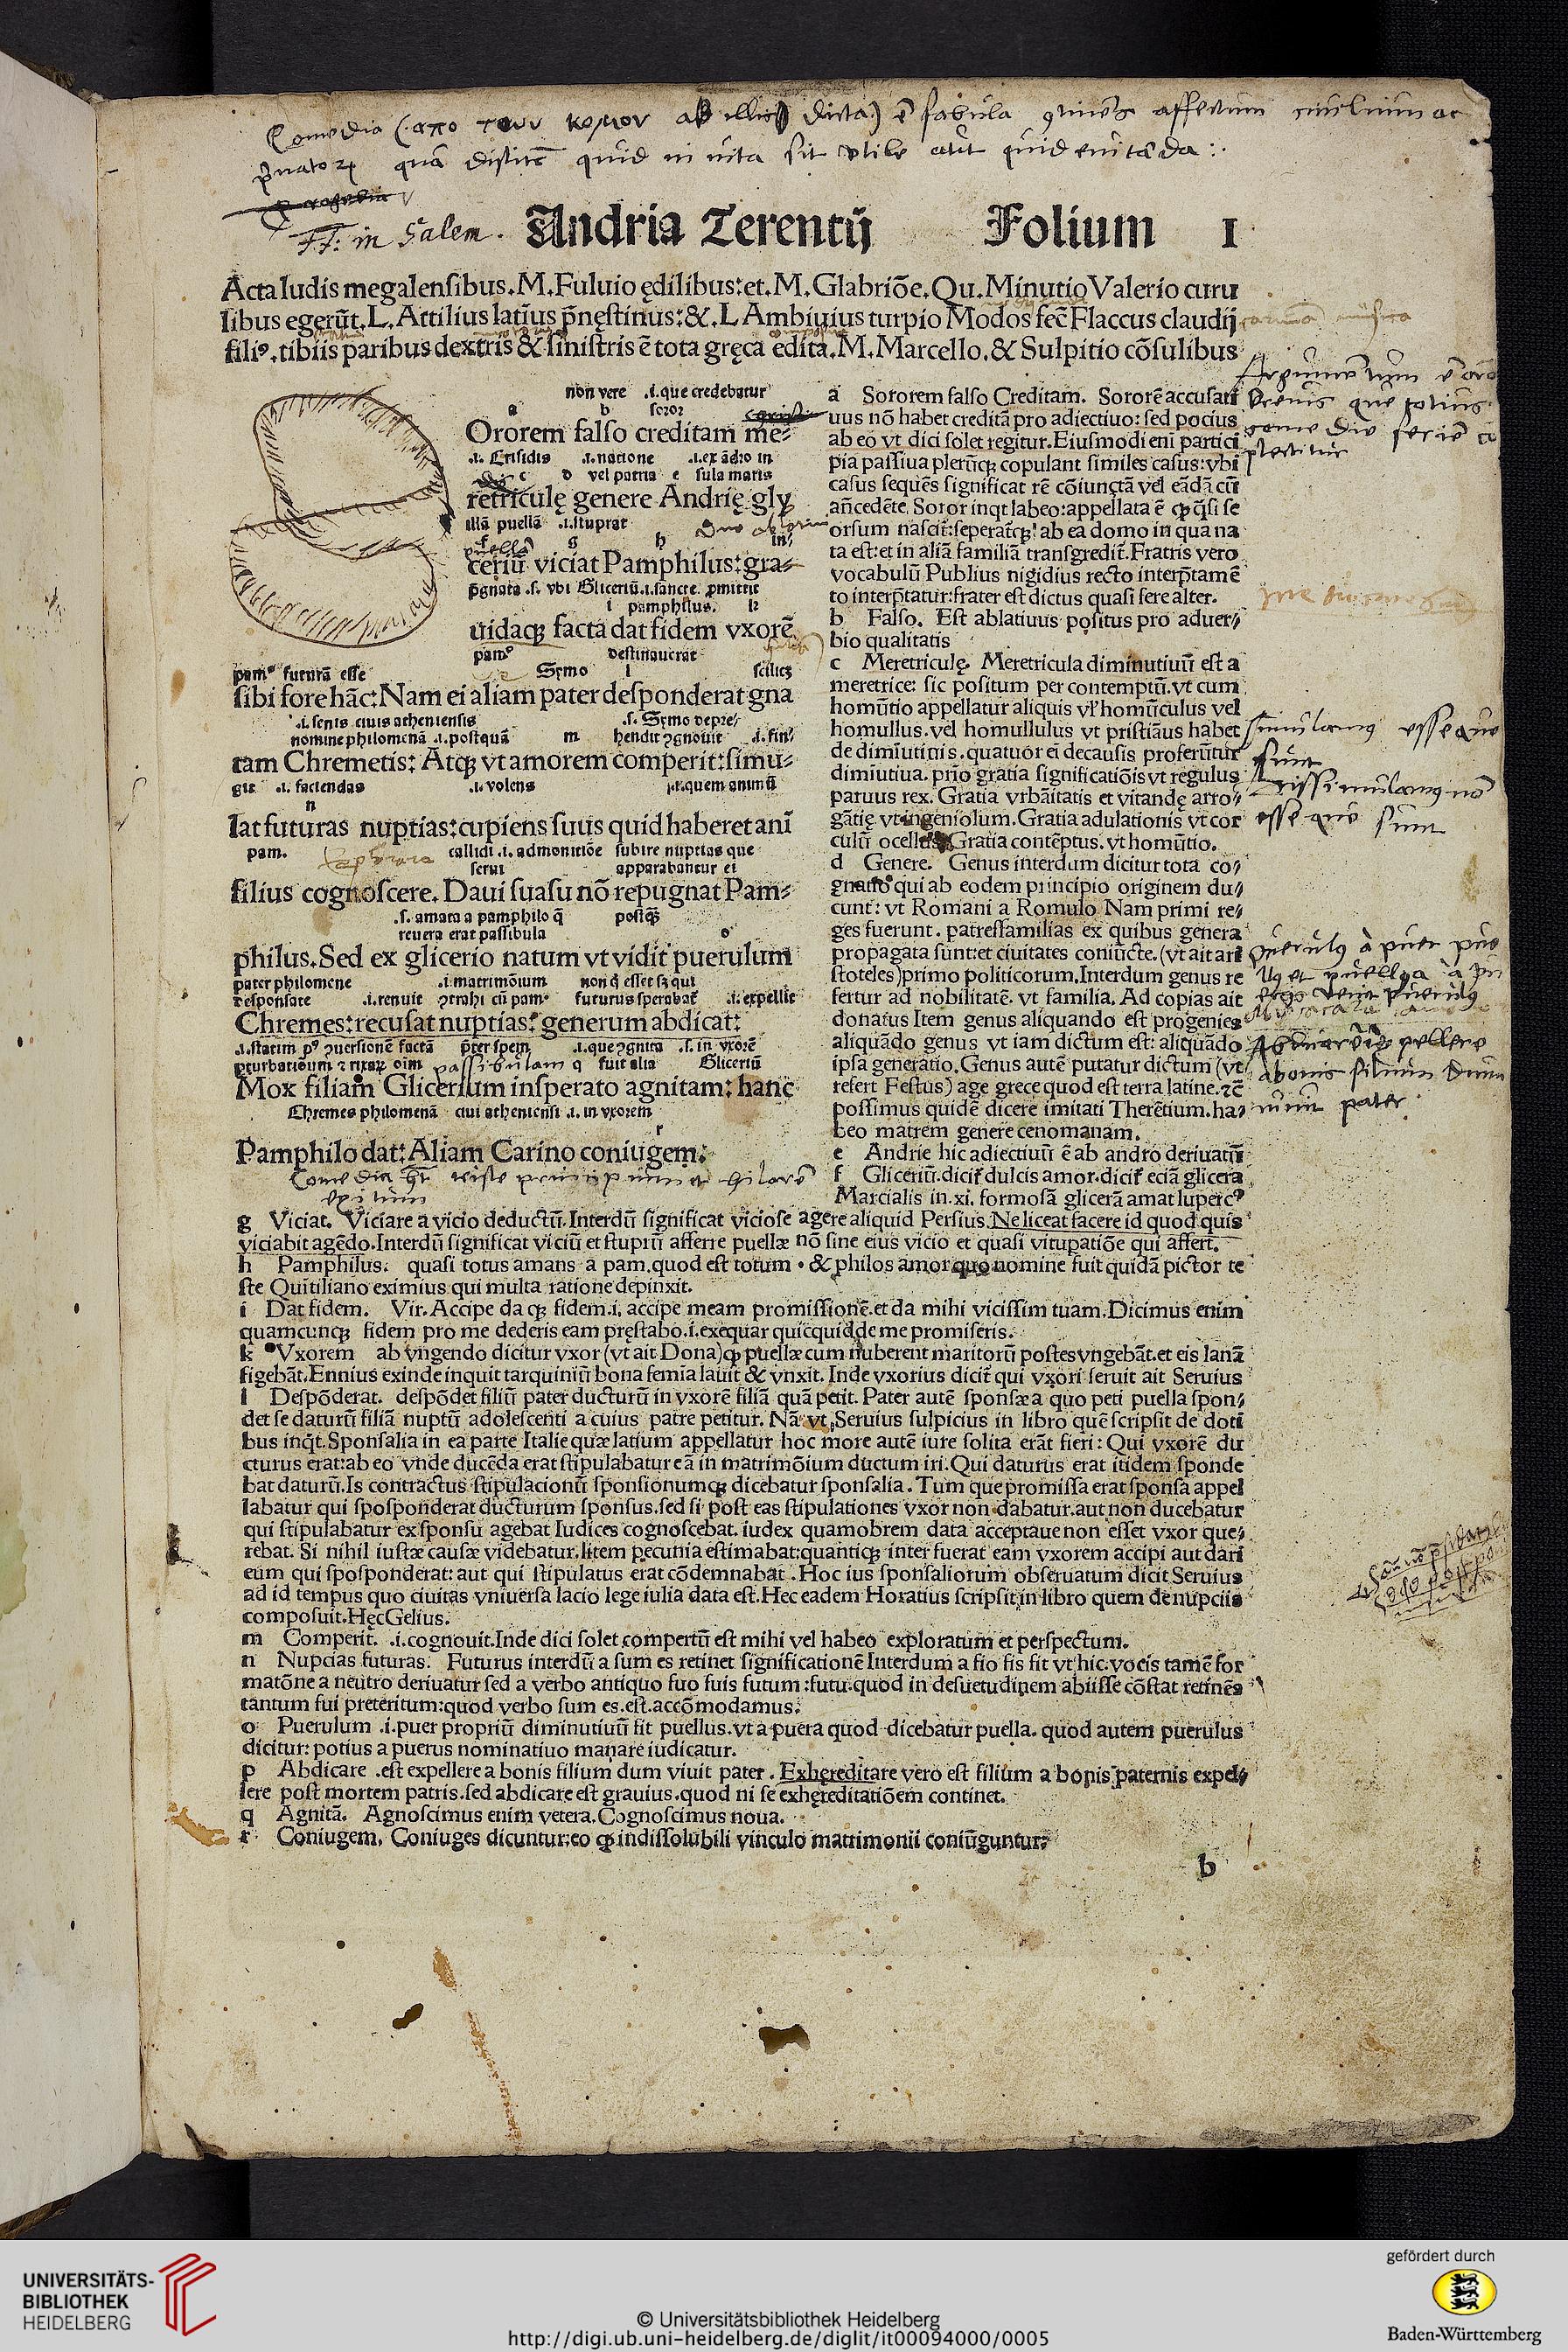 Comedia (απο των κομον ab illis dicta) ē fabula ꝯtinēs affectum ciuilium ac
pͥuator̃ qua discitr̃ quid in uita sit vtile aut quid euitanda:.
FF: in Salem.
Andria Terentij Folium 1
Acta ludis megalensibus. M. Fuluio ędilibus: et. M. Glabriōe. Qu. Minutio Valerio curu
libus egerūt. L. Attilius latius p̄nęstinus: &. L Ambiuius turpio Modos fec̄ Flaccus claudij
filiꝰ. tibiis paribus dextris & sinistris ē tota gręca edita. M. Marcello. & Sulpitio cōsulibus
non vere .i. que credebatur
a b soror
Ororem falso creditam me-
.i. Crisidis .i. natione .i. ex ādro in
c d vel patria e sula maris
retriculę genere Andrię gly
illā puellā .i. stuprat
puellā g h in-
ceriū viciat Pamphilus: gra-
p̄gnata .s. vbi Gliceriū .i. sancte ꝓmittit
i pamphilus. k
uidaqȝ facta dat fidem vxorē
pamꝰ destinauerat
pamꝰ futurā esse Symo l scilicȝ
sibi fore hāc: Nam ei aliam pater desponderat gna
.i. senis ciuis atheniensis .s. Symo depre-
nomine philomenā .i. postquā m hendit ꝯgnouit .i. fin-
tam Chremetis: Atqȝ vt amorem comperit: simu-
git .i. faciendas .i. volens .i. quem animū
n
lat futuras nuptias: cupiens suus quid haberet ani
pam. explorare callidi .i. admonitiōe subire nuptias que
serui apparabantur ei
filius cognoscere. Daui suasu nō repugnat Pam-
.s. amata a pamphilo q̄ postqȝ
reuera erat passibula o
philus. Sed ex glicerio natum vt vidit puerulum
pater philomene .i. matrimōium non q̄ esset sȝ qui
desponsate .i. renuit ꝯtrahi cū pamꝰ futurus sperabat̃ .i. expellit
Chremes: recusat nuptias: generum abdicat:
.i. statim pꝰ ꝯuersionē factā p̄ter spem .i. que ꝯgnita .s. in vxorē
ꝑturbationum ⁊ rixaꝝ oīm passibulam q fuit alia Gliceriū
Mox filiam Glicerium insperato agnitam: hanc
Chremes philomenā ciui atheniensi .i. in vxorem
r
Pamphilo dat: Aliam Carino coniugem.
Comedia hȝ triste principium et hilarē
exitum
a Sororem falso Creditam. Sororē accusati
uus nō habet creditā pro adiectiuo: sed pocius
ab eo vt dici solet regitur. Eiusmodi eni partici
pia passiua plerūqȝ copulant similes casus: vbi
casus sequēs significat rē cōiunctā vel eādā cū
an̄cedēte. Soror inqt labeo: appellata ē ꝙ q̄si se
orsum nascit̃: seperat̃qȝ ab ea domo in qua na
ta est: et in aliā familiā transgredit̃. Fratris vero
vocabulū Publius nigidius recto interp̄tamē
to interp̄tatur: frater est dictus quasi fere alter.
b Falso. Est ablatiuus positus pro aduer-
bio qualitatis
c Meretriculę. Meretricula diminutiuū est a
meretrice: sic positum per contemptū. vt cum
homūtio appellatur aliquis vl' homūculus vel
homullus. vel homullulus vt pristiāus habet
de dimiutiuis. quatuor ei decausis proferūtur
dimiutiua. prīo gratia significatiōis vt regulus
paruus rex. Gratia vrbāitatis et vitandę arro-
gātię vt ingeniolum. Gratia adulationis vt cor
culū ocellus. Gratia contēptus. vt homūtio.
d Genere. Genus interdum dicitur tota co-
gnatio qui ab eodem principio originem du-
cunt: vt Romani a Romulo Nam primi re-
ges fuerunt. patresfamilias ex quibus genera
propagata sunt: et ciuitates coniūcte. (vt ait ari
stoteles) primo politicorum. Interdum genus re
fertur ad nobilitatē. vt familia. Ad copias ait
donatus Item genus aliquando est progenies
aliquādo genus vt iam dictum est: aliquādo
ipsa generatio. Genus autē putatur dictum (vt
refert Festus) age grece quod est terra latine. ⁊c̄
possimus quidē dicere imitati Therētium. ha-
beo matrem genere cenomanam.
e Andrie hic adiectiuū ē ab andro deriuatū
f Gliceriū. dicit̃ dulcis amor. dicit̃ eciā glicera
Marcialis in. xi. formosā glicerā amat lupercꝰ
g Viciat. Viciare a vicio deductū. Interdū significat viciose agere aliquid Persius. Ne liceat facere id quod quis
viciabit agēdo. Interdū significat viciū et stuprū afferre puellæ nō sine eius vicio et quasi vitupatiōe qui affert.
h Pamphilus. quasi totus amans a pam. quod est totum. & philos amor quo nomine fuit quidā pictor te
ste Quitiliano eximius qui multa ratione depinxit.
i Dat fidem. Vir. Accipe da qȝ fidem .i. accipe meam promissionē. et da mihi vicissim tuam. Dicimus enim
quamcunqȝ fidem pro me dederis eam pręstabo .i. exequar quicquid de me promiseris.
k Vxorem ab vngendo dicitur vxor (vt ait Dona) ꝙ puellæ cum nuberent maritorū postes vngebāt. et eis lanā
figebāt. Ennius exinde inquit tarquiniū bona femīa lauit & vnxit. Inde vxorius dicit̃ qui vxori seruit ait Seruius
l Despōderat. despōdet filiū pater ducturū in vxorē filiā quā petit. Pater autē sponsæ a quo peti puella spon-
det se daturū filiā nuptū adolescenti a cuius patre petitur. Nā vt Seruius sulpicius in libro quē scripsit de doti
bus inq̄t. Sponsalia in ea parte Italie quæ latium appellatur hoc more autē iure solita erāt fieri: Qui vxorē du
cturus erat: ab eo vnde ducēda erat stipulabatur eā in matrimōium ductum iri. Qui daturus erat itidem sponde
bat daturū. Is contractus stipulacionū sponsionumqȝ dicebatur sponsalia. Tum que promissa erat sponsa appel
labatur qui sposponderat ducturum sponsus. sed si post eas stipulationes vxor non dabatur. aut non ducebatur
qui stipulabatur ex sponsu agebat Iudices cognoscebat. iudex quamobrem data acceptaue non esset vxor que-
rebat. Si nihil iustæ causæ videbatur. litem pecunia estimabat: quantiqȝ inter fuerat eam vxorem accipi aut dari
eum qui sposponderat: aut qui stipulatus erat cōdemnabat. Hoc ius sponsaliorum obseruatum dicit Seruius
ad id tempus quo ciuitas vniuersa lacio lege iulia data est. Hec eadem Horatius scripsit in libro quem de nupciis
composuit. Hęc Gelius.
m Comperit. .i. cognouit. Inde dici solet compertū est mihi vel habeo exploratum et perspectum.
n Nupcias futuras. Futurus interdū a sum es retinet significationē Interdum a fio fis fit vt hic. vocis tamē for
matōne a neutro deriuatur sed a verbo antiquo fuo fuis futum: futu. quod in desuetudinem abiisse cōstat retinēs
tantum fui preteritum: quod verbo sum es. est. accōmodamus.
o Puerulum .i. puer propriū diminutiuū fit puellus. vt a puera quod dicebatur puella. quod autem puerulus
dicitur: potius a puerus nominatiuo manare iudicatur.
p Abdicare .est expellere a bonis filium dum viuit pater. Exhęreditare vero est filium a bonis paternis expel-
lere post mortem patris. sed abdicare est grauius. quod ni se exhęreditatiōem continet.
q Agnitā. Agnoscimus enim vetera. Cognoscimus noua.
r Coniugem. Coniuges dicuntur: eo ꝙ indissolubili vinculo matrimonii coniūguntur.
b
Argumentum ē orō
breuis que totius
comedie seriē cō
plectitur
simulamus esse que
sunt
dissimulamus nō
esse que sunt
puerulus à puer pue
llus et puella à pu
Abdicare ē expellere
a bonis filium dum
uiuit pater
UNIVERSITÄTS-
BIBLIOTHEK
HEIDELBERG
© Universitätsbibliothek Heidelberg
http://digi.ub.uni-heidelberg.de/diglit/it00094000/0005
gefördert durch
Baden-Württemberg